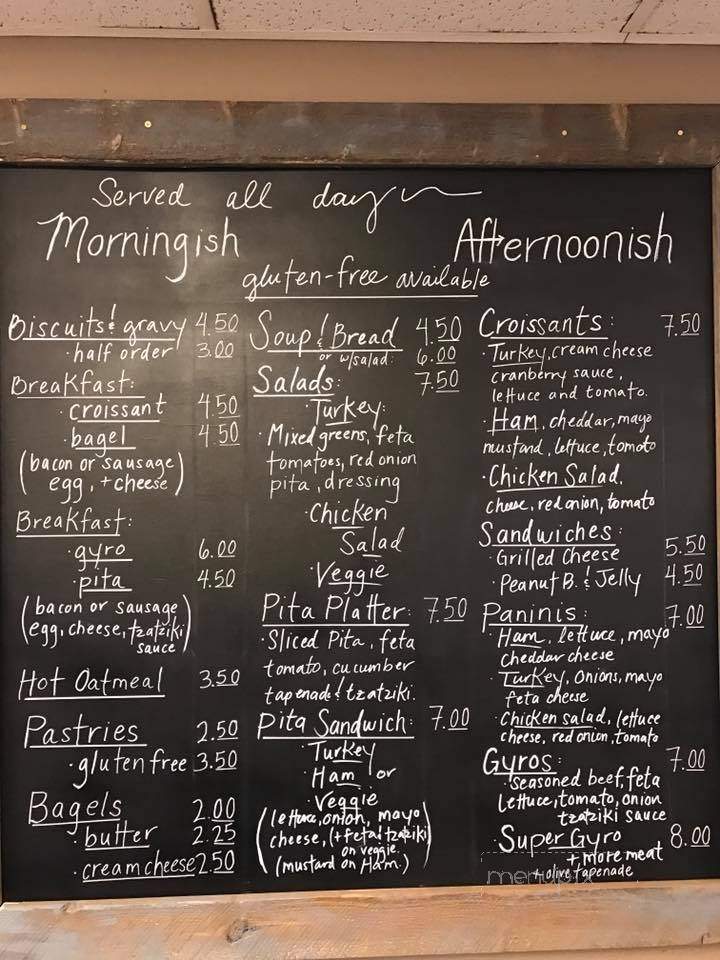 Served all day
Morningish
Afternoonish
gluten-free available
Biscuits & gravy 4.50
· half order 3.00
Breakfast:
· croissant 4.50
· bagel 4.50
(bacon or sausage
egg, + cheese)
Breakfast:
· gyro 6.00
· pita 4.50
(bacon or sausage
egg, cheese, tzatziki
sauce)
Hot Oatmeal 3.50
Pastries 2.50
· gluten free 3.50
Bagels 2.00
· butter 2.25
· cream cheese 2.50
Soup & Bread 4.50
or w/salad: 6.00
Salads: 7.50
· Turkey:
· Mixed greens, feta
tomatoes, red onion
pita, dressing
· Chicken
Salad
· Veggie
Pita Platter: 7.50
· Sliced Pita, feta
tomato, cucumber
tapenade & tzatziki.
Pita Sandwich: 7.00
· Turkey
· Ham or
· Veggie
(lettuce, onion, mayo
cheese, (+ feta & tzatziki)
on veggie.
(mustard on Ham.)
Croissants: 7.50
· Turkey, cream cheese
cranberry sauce,
lettuce and tomato.
· Ham, cheddar, mayo
mustard, lettuce, tomoto
· Chicken Salad,
cheese, red onion, tomato
Sandwiches:
· Grilled Cheese 5.50
· Peanut B. & Jelly 4.50
Paninis: 7.00
· Ham, lettuce, mayo
cheddar cheese
· Turkey, onions, mayo
feta cheese
· Chicken salad, lettuce
cheese, red onion, tomato
Gyros: 7.00
· seasoned beef, feta
lettuce, tomato, onion
tzatziki sauce
· Super Gyro 8.00
+ more meat
+ olive tapenade
menupix